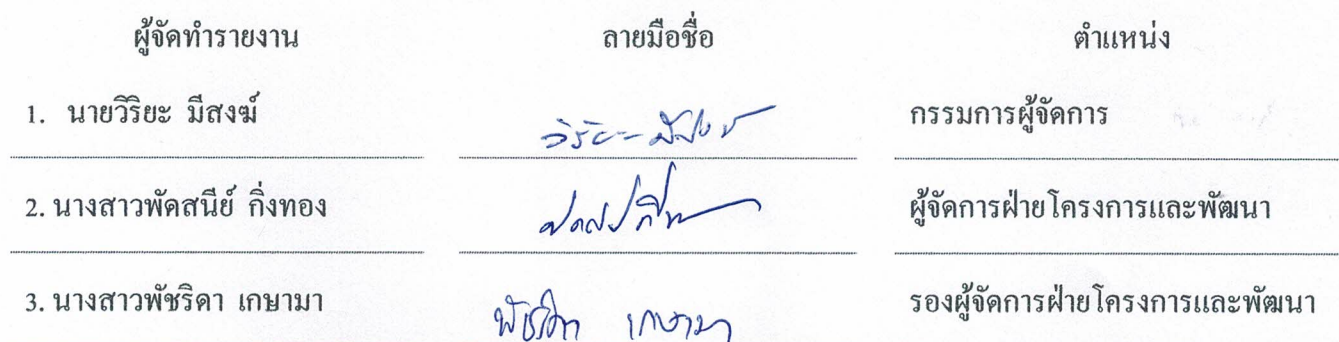 ผู้จัดทำรายงาน ลายมือชื่อ ตำแหน่ง
1. นายวิริยะ มีสงฆ์ วิริยะ มีสงฆ์ กรรมการผู้จัดการ
2. นางสาวพัดสนีย์ กิ่งทอง ผู้จัดการฝ่ายโครงการและพัฒนา
3. นางสาวพัชริดา เกษามา พัชริดา เกษามา รองผู้จัดการฝ่ายโครงการและพัฒนา